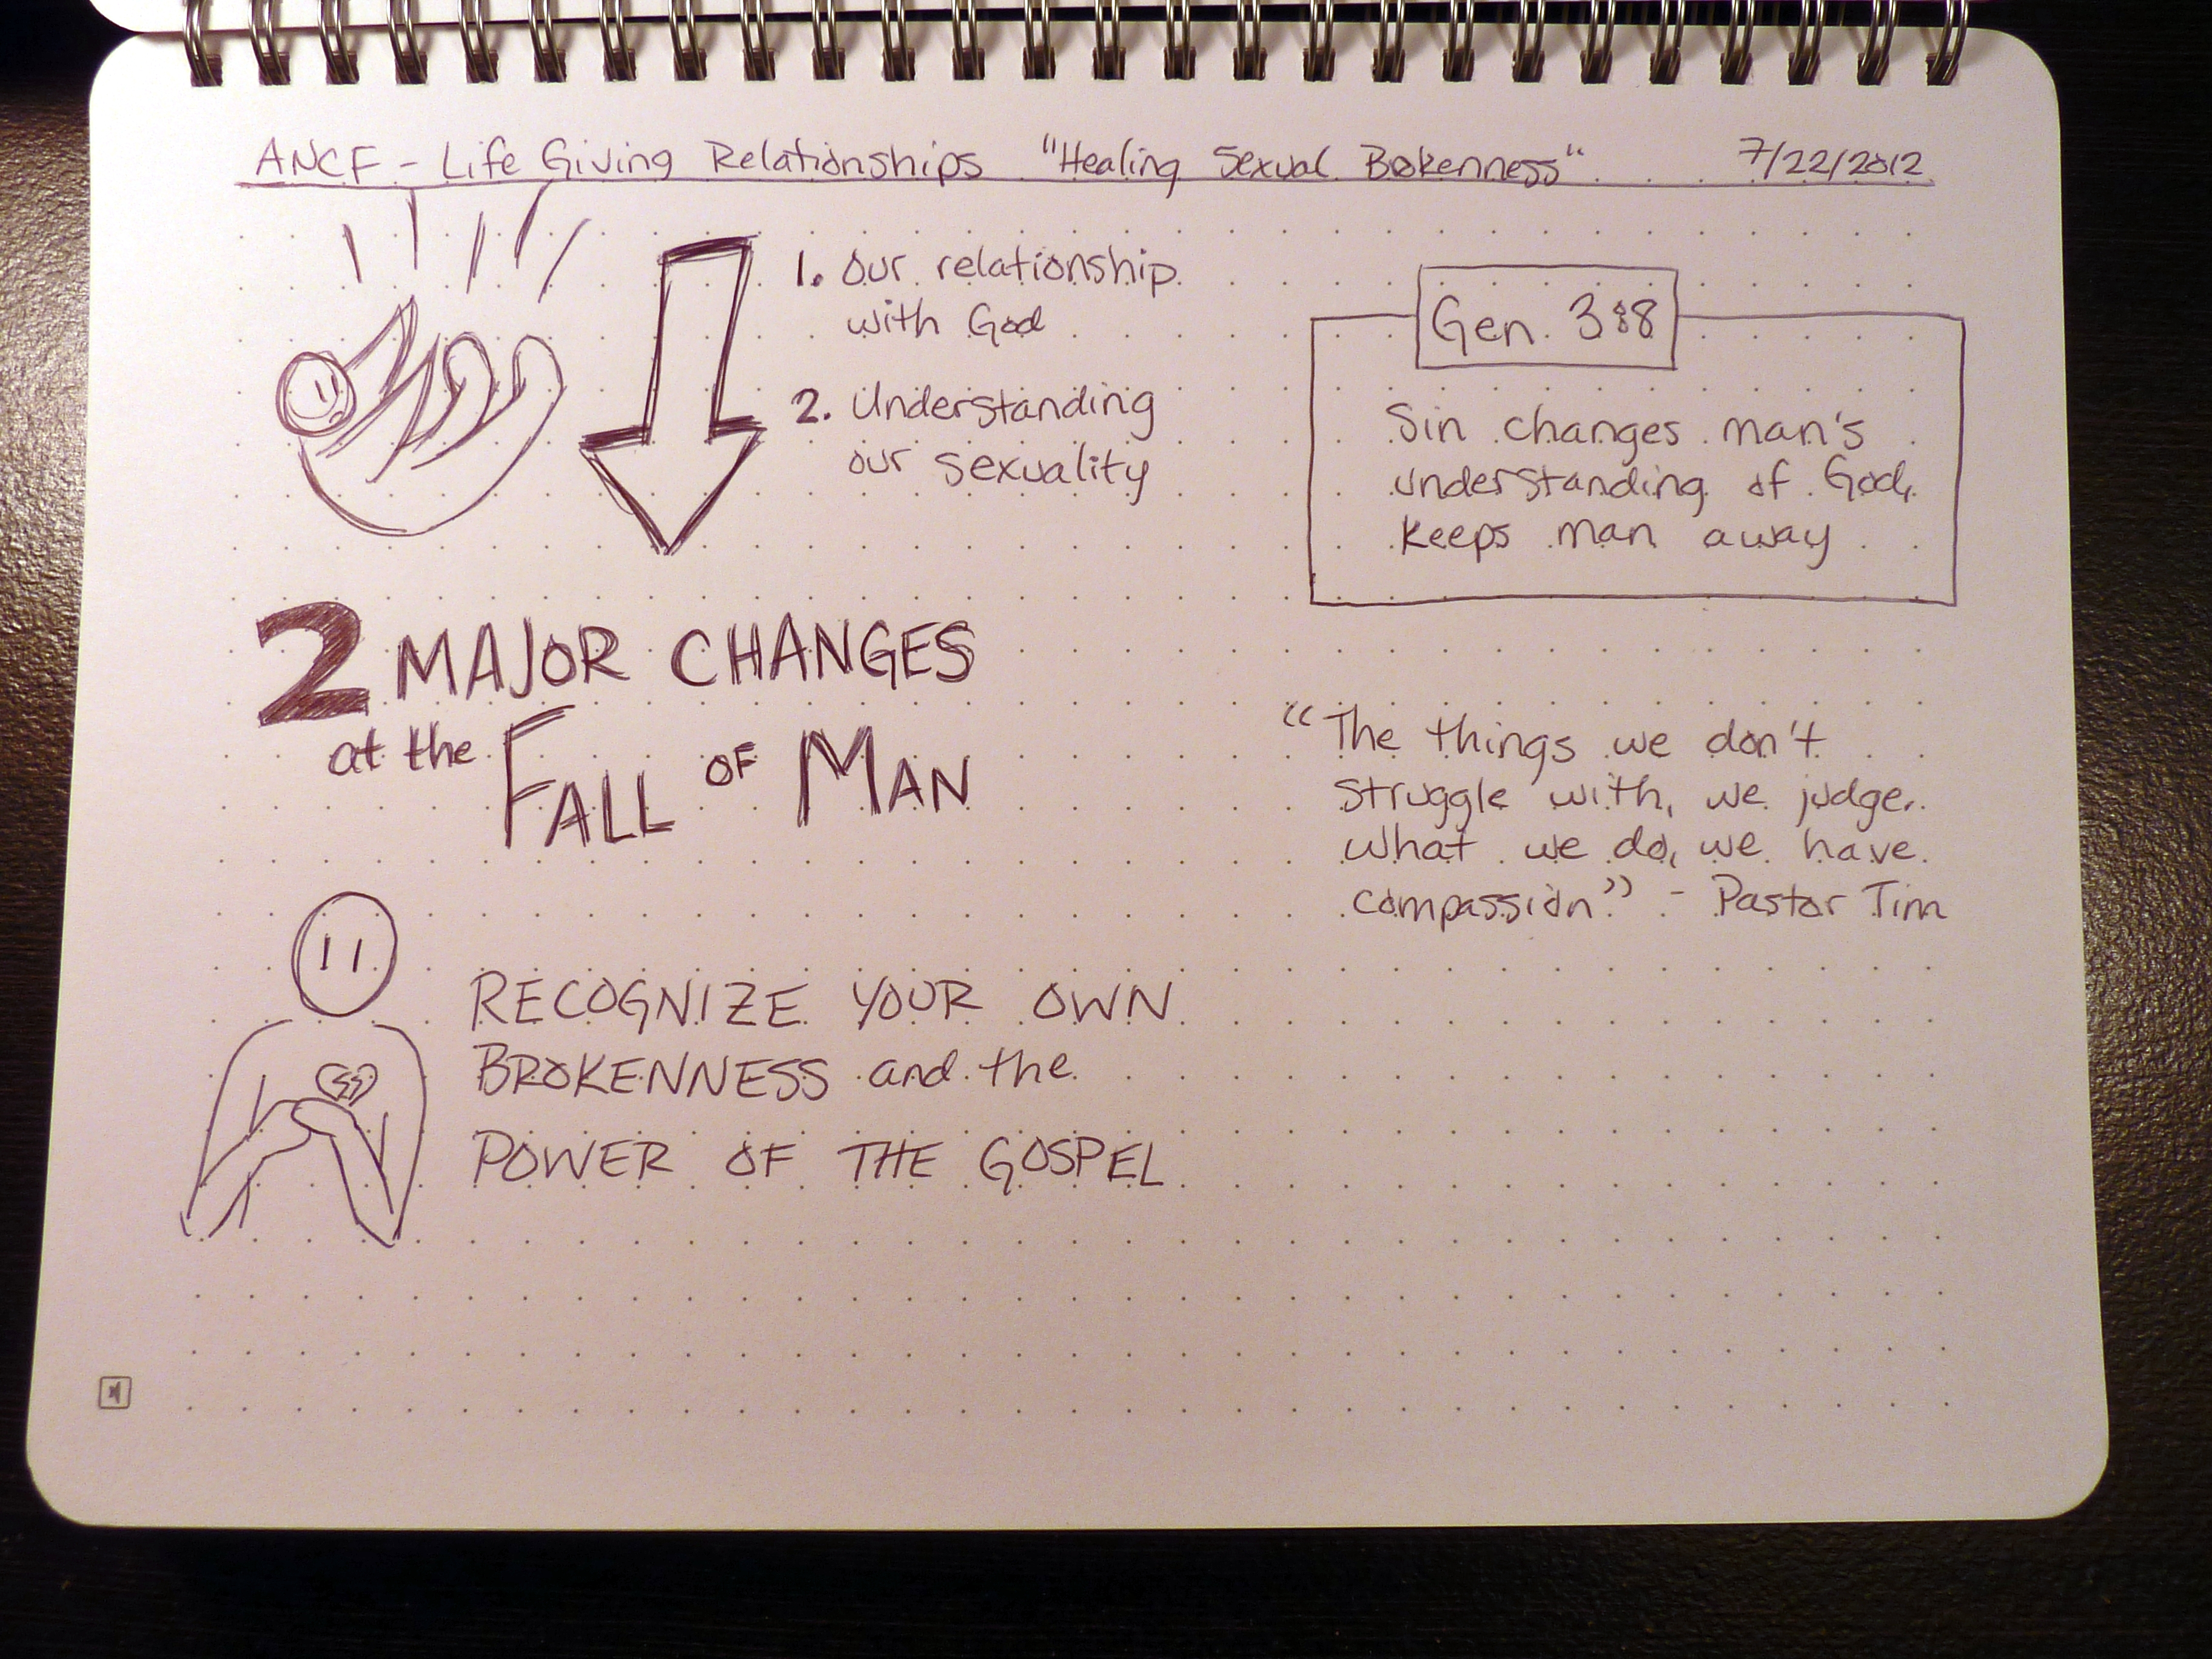 ANCF - Life Giving Relationships "Healing Sexual Brokenness" 7/22/2012
1. Our relationship
with God
2. Understanding
our sexuality
Gen. 3:8
Sin changes man's
understanding of God,
keeps man away
2 MAJOR CHANGES
at the FALL OF MAN
"The things we don't
struggle with, we judge.
What we do, we have
compassion." - Pastor Tim
RECOGNIZE YOUR OWN
BROKENNESS and the
POWER OF THE GOSPEL